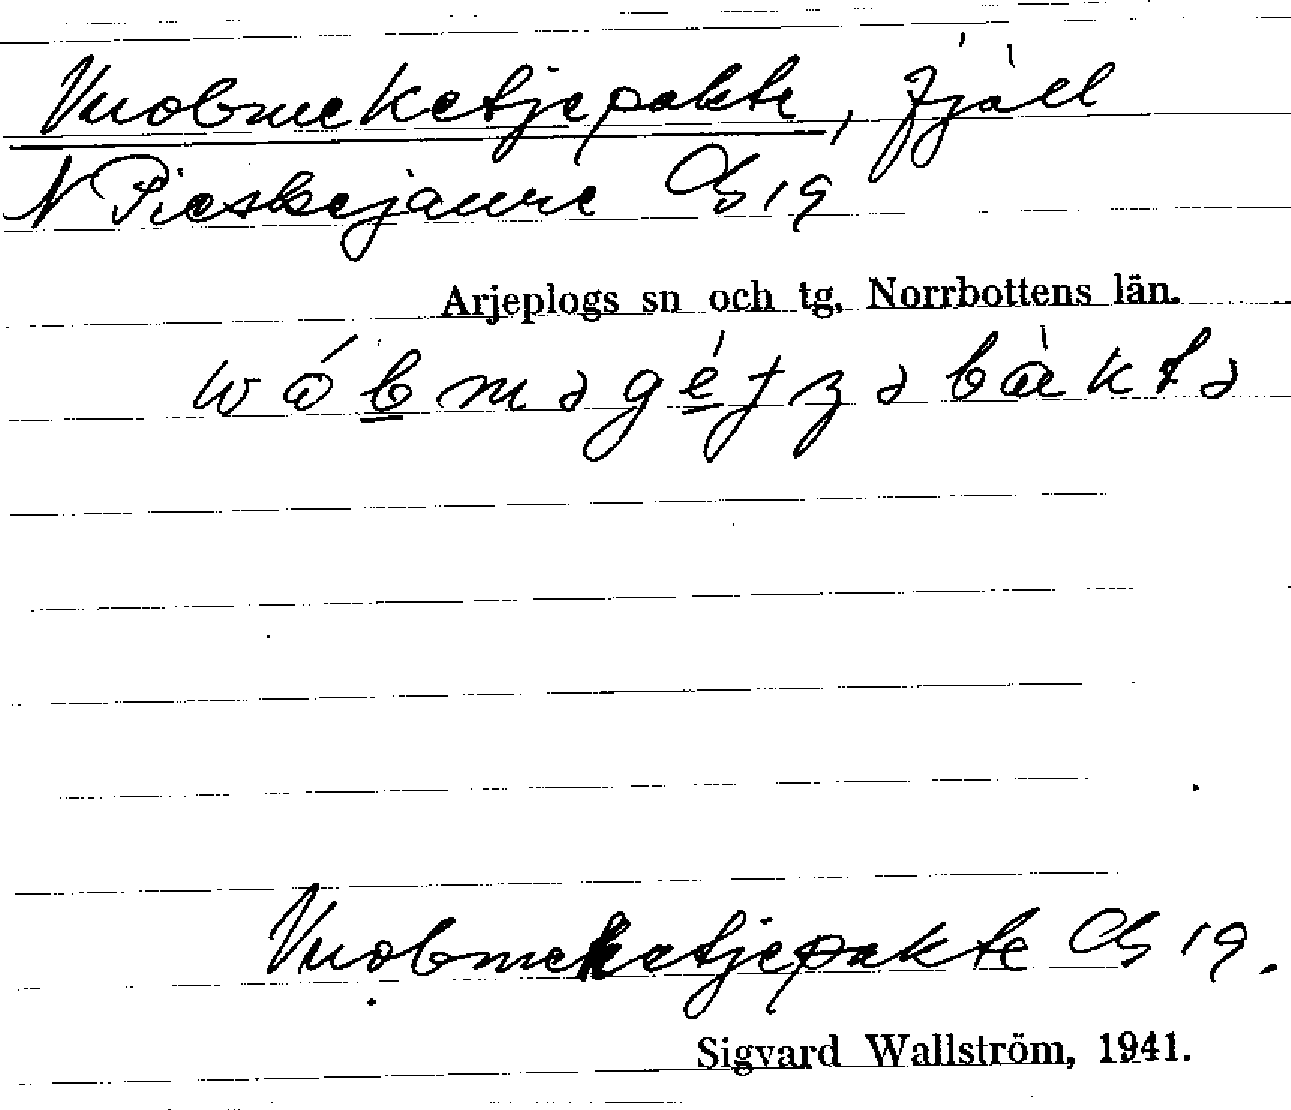 Vuobmeketjepakte, fjäll
N Pieskejaure Gb 19
Arjeplogs sn och tg, Norrbottens län.
wó̱bməgé̱tʒəbàktə
Vuobmeketjepakte Gb 19.
Sigvard Wallström, 1941.